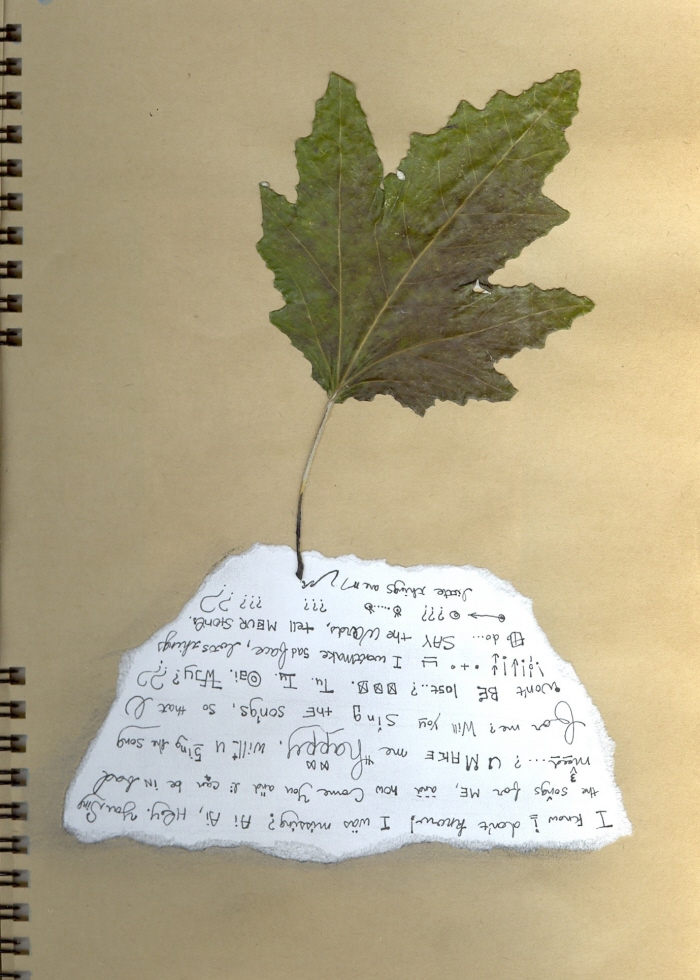 I know i don't know! I wäs missing? Ai Ai, Hey. You Sing
the songs for ME, änd how Come You änd i: can be in bad
mood....? U MAKE me #happy. will U Sing the song
for me? Will you Sing thE songs, so that I
won't BE lost..? ⊠⊠⊠. Tu. Iu. ©ai. Why???
I wanna make sad face, loves things
... do... SAY the Words, tell MEUR Stories.
??? ??? ???
little things are